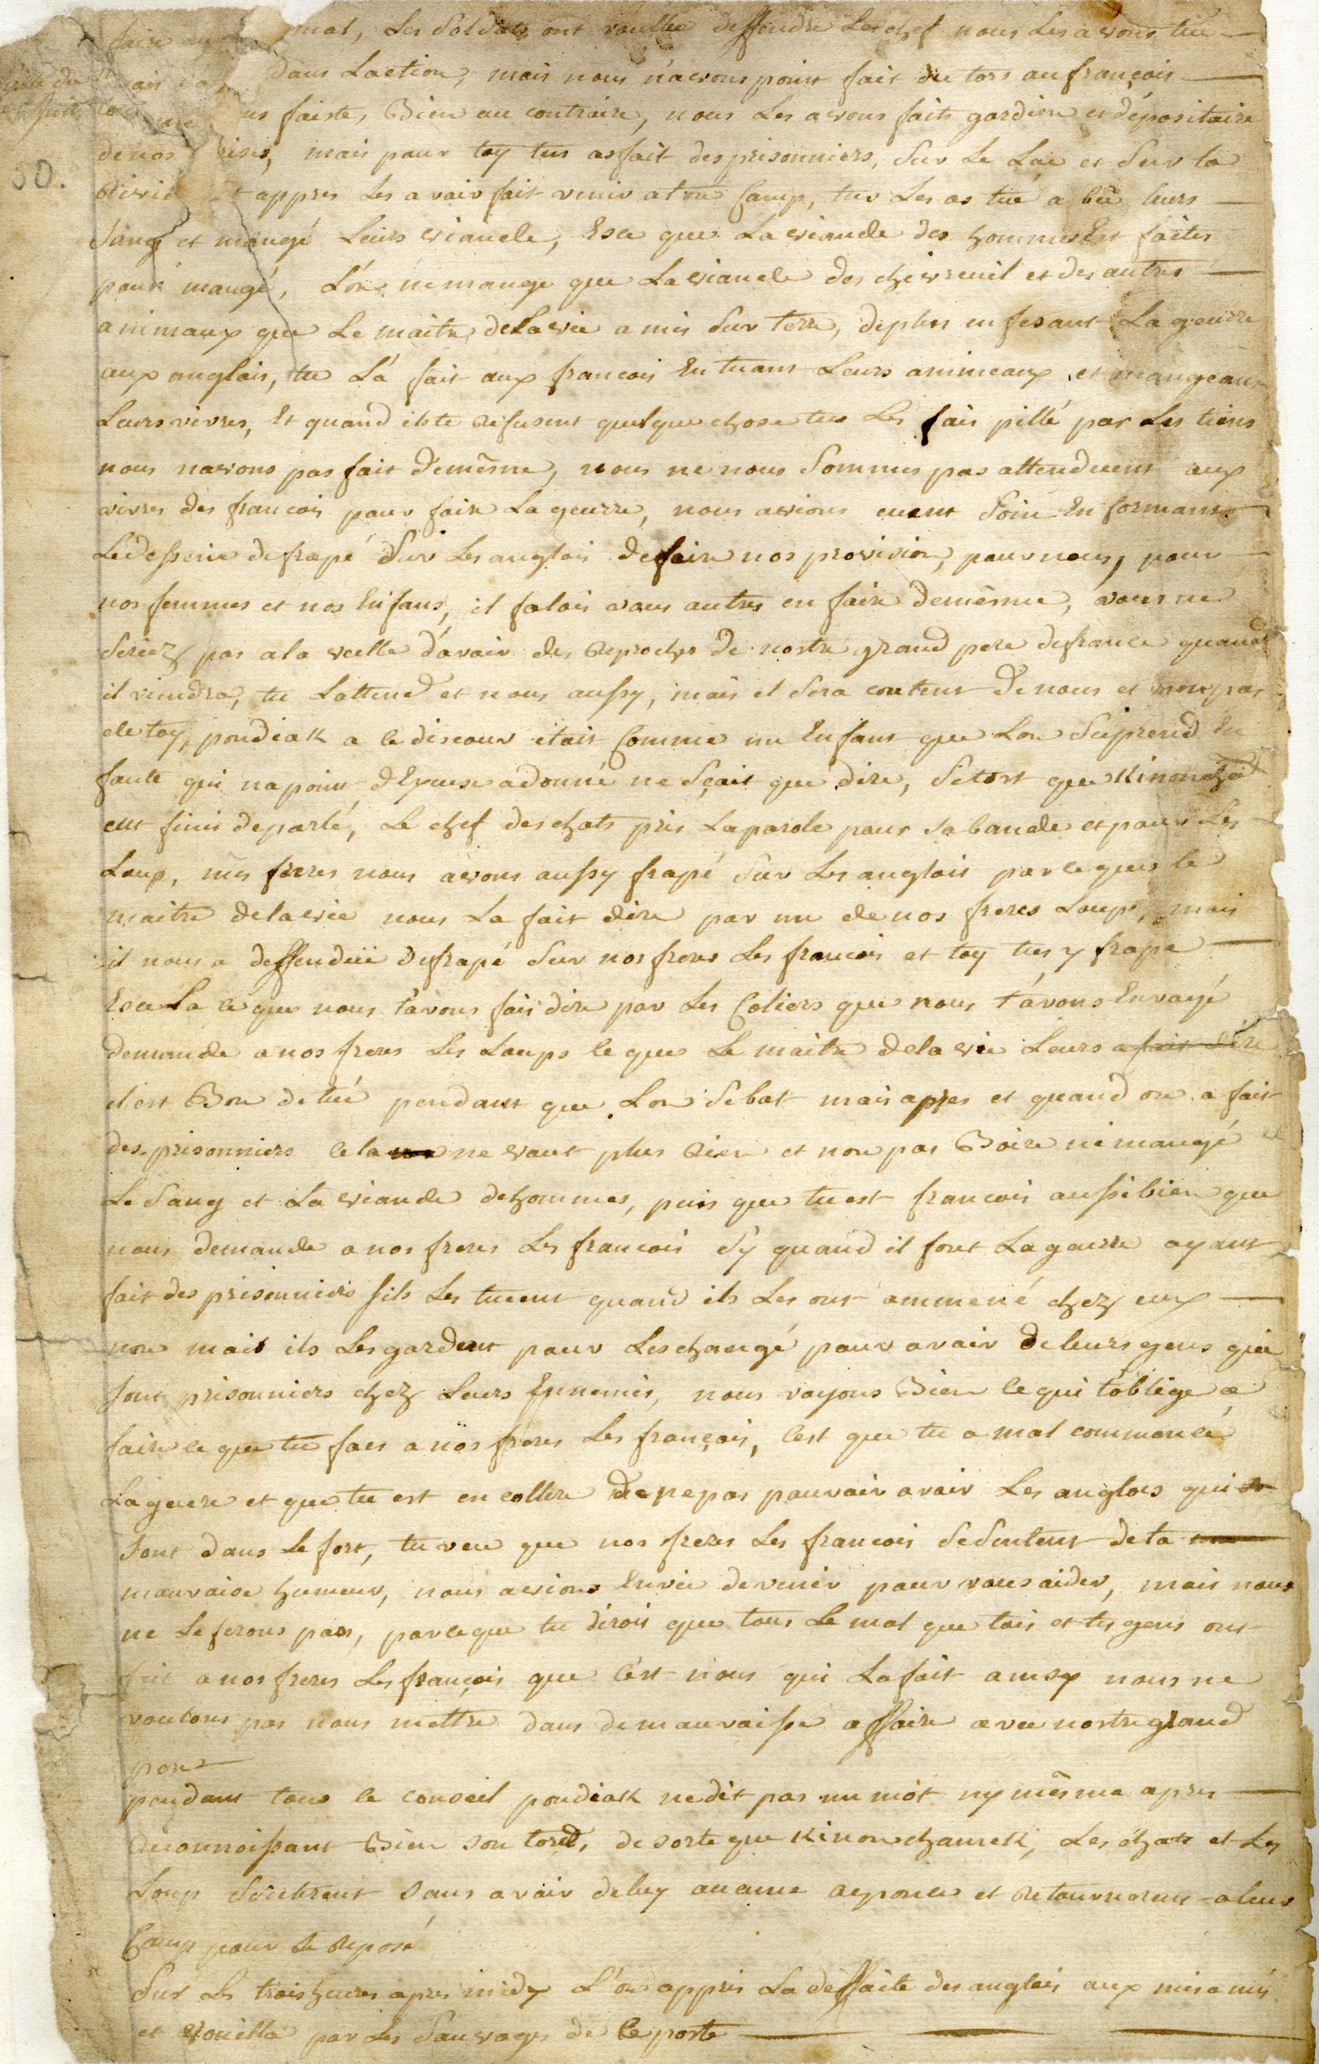 faire mal, Les Soldats ont voullu deffendre Les chef nous Les avons tué
dans Laction, mais nous n'avons point fait du tors au françois
faistes, Bien au contraire, nous Les avons faits gardien et dépositaire
30.
de nos prises, mais pour toy tus as fait des prisonniers, Sur Le Lac et Sur la
Riviere et appres Les avoir fait venir a ton Camp, tu Les as tué a bu leurs
Sang et mangé Leurs viande, Esce que La viande des hommes Est faites
pour mangé, L'on ne mange que La viande des chevreuil et des autres
animaux que Le maitre dela vie a mis Sur terre, deplus en fesant La geurre
aux anglais, tu L'a fait aux francois En tuant Leurs animeaux et mangeant
Leurs vivres, Et quand ils te refusent quelque chose tu Les fais pillé par Les tiens
nous navons pas fait demême, nous ne nous Sommes pas attenduent aux
vivres des francois pour faire La geurre, nous avions euent Soin En formant
Le dessein de frapé Sur Les anglois de faire nos provision, pour nous, pour
nos femmes et nos Enfans, il falois vous autres en faire demême, vous ne
Seriez pas a la veille d'avoir des reproches de nostre grand pere defrance quand
il viendra, tu Lattend et nous aussy, mais il Sera content de nous et non pas
de toy, pondiak a ce discour était Comme un Enfant que Lon Surprend En
faute qui na point d'Excuse a donné ne Sçait que dire, Sitost que Kinonchâ
eut finis deparlé, Le chef des chats pris La parole pour sa bande et pour Les
Loup, mes freres nous avons aussy frapé Sur Les anglois par ce que le
maitre dela vie nous La fait dire par un de nos freres Loups, mais
il nous a deffenduë de frapé Sur nos freres Les francois et toy tu y frape
Esce La ce que nous t'avons fais dire par Les Coliers que nous t'avons Envoyé
demande a nos freres Les Loups ce que Le maitre dela vie Leurs a fait dire
il est Bon de tué pendant que Lon Se bat mais apres et quand on a fait
des prisonniers cela ne vaut plus rien et non pas Boire ni mangé
Le Sang et La viande dehommes, puis que tu est francois aussi bien que
nous demande a nos freres Les francois S'y quand il font La guerre ayant
fait des prisonniers Sils Les tueent quand ils Les ont ammené chez eux
non mais ils Les gardent pour Les changé pour avoir de leurs gens qui
Sont prisonniers chez Leurs Ennemis, nous voyons Bien ce qui t'oblige a
faire ce que tu fais a nos freres Les françois, C'est que tu a mal commencé
La guere et que tu est en collere de ne pas pouvoir avoir Les anglois qui
Sont dans Le fort, tu veu que nos freres Les francois Se Sentent de ta
mauvaise humeur, nous avions Envie de venir pour vous aider, mais nous
ne Le ferons pas, parce que tu dirois que tous Le mal que tois et tes gens ont
fait a nos freres Les françois que C'est nous qui La fait ainsy nous ne
voulons pas nous mettre dans de mauvaisse affaire avec nostre grand
pere
pendant tous le conseil pondiak ne dit pas un mot ny même apres
reconnoissant Bien son tord, de sorte que Kinonchamek, Les chats et Les
Loup Sortirent Sans avoir de luy aucune reponce et retournerent a leur
Camp pour Se reposé
Sur Les trois heures apres midy L'on appris La deffaite des anglois aux miamis
et vouilla par Les Sauvages de Ce poste